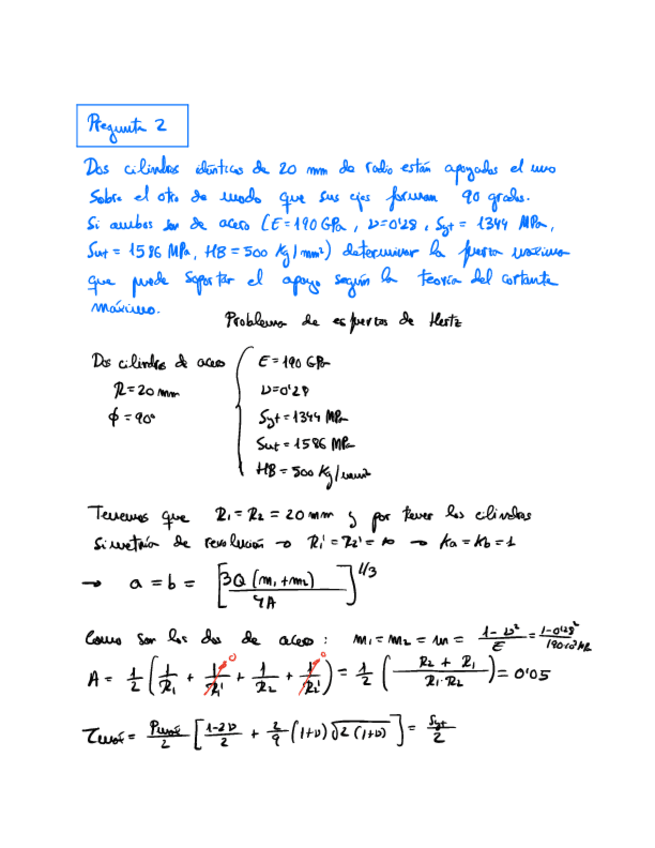 Pregunta 2
Dos cilindros idénticos de 20 mm de radio están apoyados el uno
sobre el otro de modo que sus ejes forman 90 grados.
Si ambos son de acero (E=190 GPa, ν=0'28, Syt = 1344 MPa,
Sut = 1586 MPa, HB = 500 Kg/mm²) determinar la fuerza máxima
que puede soportar el apoyo según la teoría del cortante
máximo.
Problema de esfuerzos de Hertz
Dos cilindros de acero { E = 190 GPa
R = 20 mm ν=0'28
ϕ = 90° Syt = 1344 MPa
Sut = 1586 MPa
HB = 500 Kg/mm²
Tenemos que R₁ = R₂ = 20 mm y por tener los cilindros
simetría de revolución → R₁' = R₂' = ∞ → Ka = Kb = 1
→ a = b = [3Q (m₁ + m₂) / 4A]^1/3
Como son los dos de acero : m₁ = m₂ = m = (1 - ν²)/E = (1-0'28²)/
A = 1/2 (1/R₁ + 1/R₁' + 1/R₂ + 1/R₂') = 1/2 ((R₂ + R₁)/(R₁·R₂)) = 0'05
Tmáx = Pmáx/2 [(1-2ν)/2 + 2/9 (1+ν) √(2(1+ν))] = Syt/2